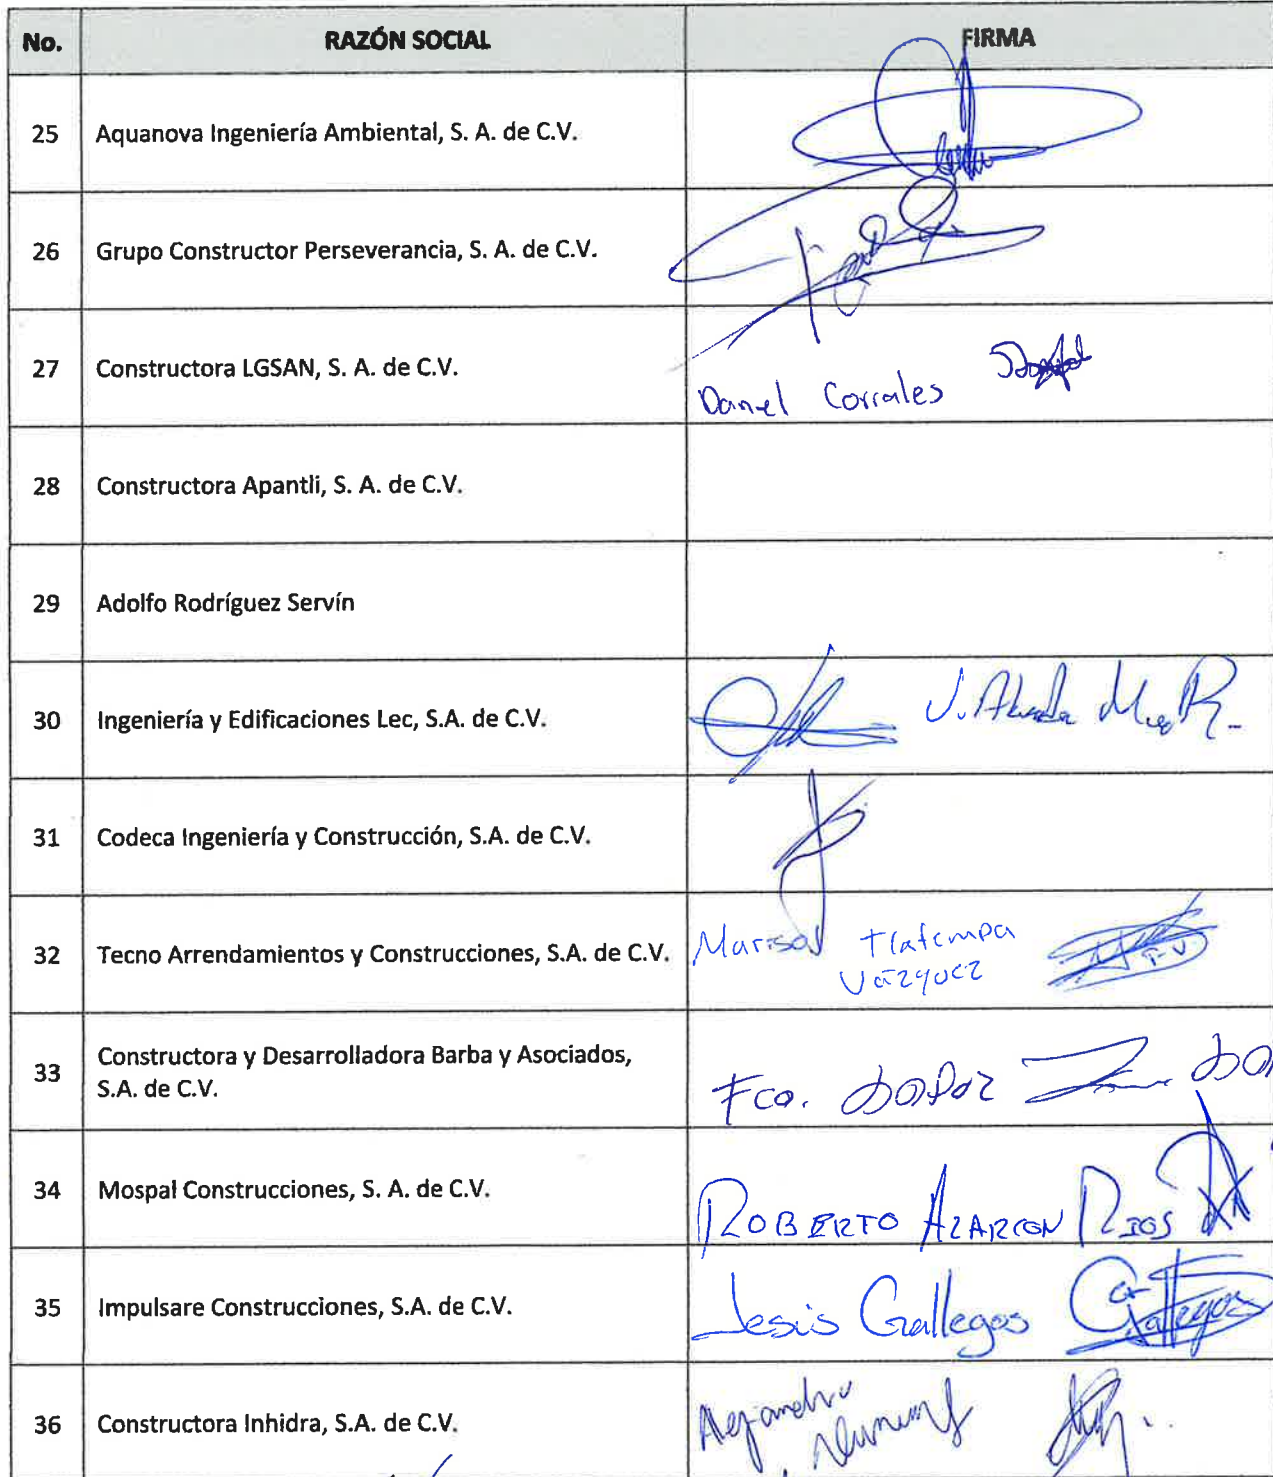 No. RAZÓN SOCIAL FIRMA
25 Aquanova Ingeniería Ambiental, S. A. de C.V.
26 Grupo Constructor Perseverancia, S. A. de C.V.
27 Constructora LGSAN, S. A. de C.V.
Daniel Corrales
28 Constructora Apantli, S. A. de C.V.
29 Adolfo Rodríguez Servín
30 Ingeniería y Edificaciones Lec, S.A. de C.V.
31 Codeca Ingeniería y Construcción, S.A. de C.V.
32 Tecno Arrendamientos y Construcciones, S.A. de C.V.
Marisol Tlatempa
Vázquez
33 Constructora y Desarrolladora Barba y Asociados,
S.A. de C.V.
Fco.
34 Mospal Construcciones, S. A. de C.V.
ROBERTO ALARCON RIOS
35 Impulsare Construcciones, S.A. de C.V.
Jesis Gallegos
Gallegos
36 Constructora Inhidra, S.A. de C.V.
Alejandro